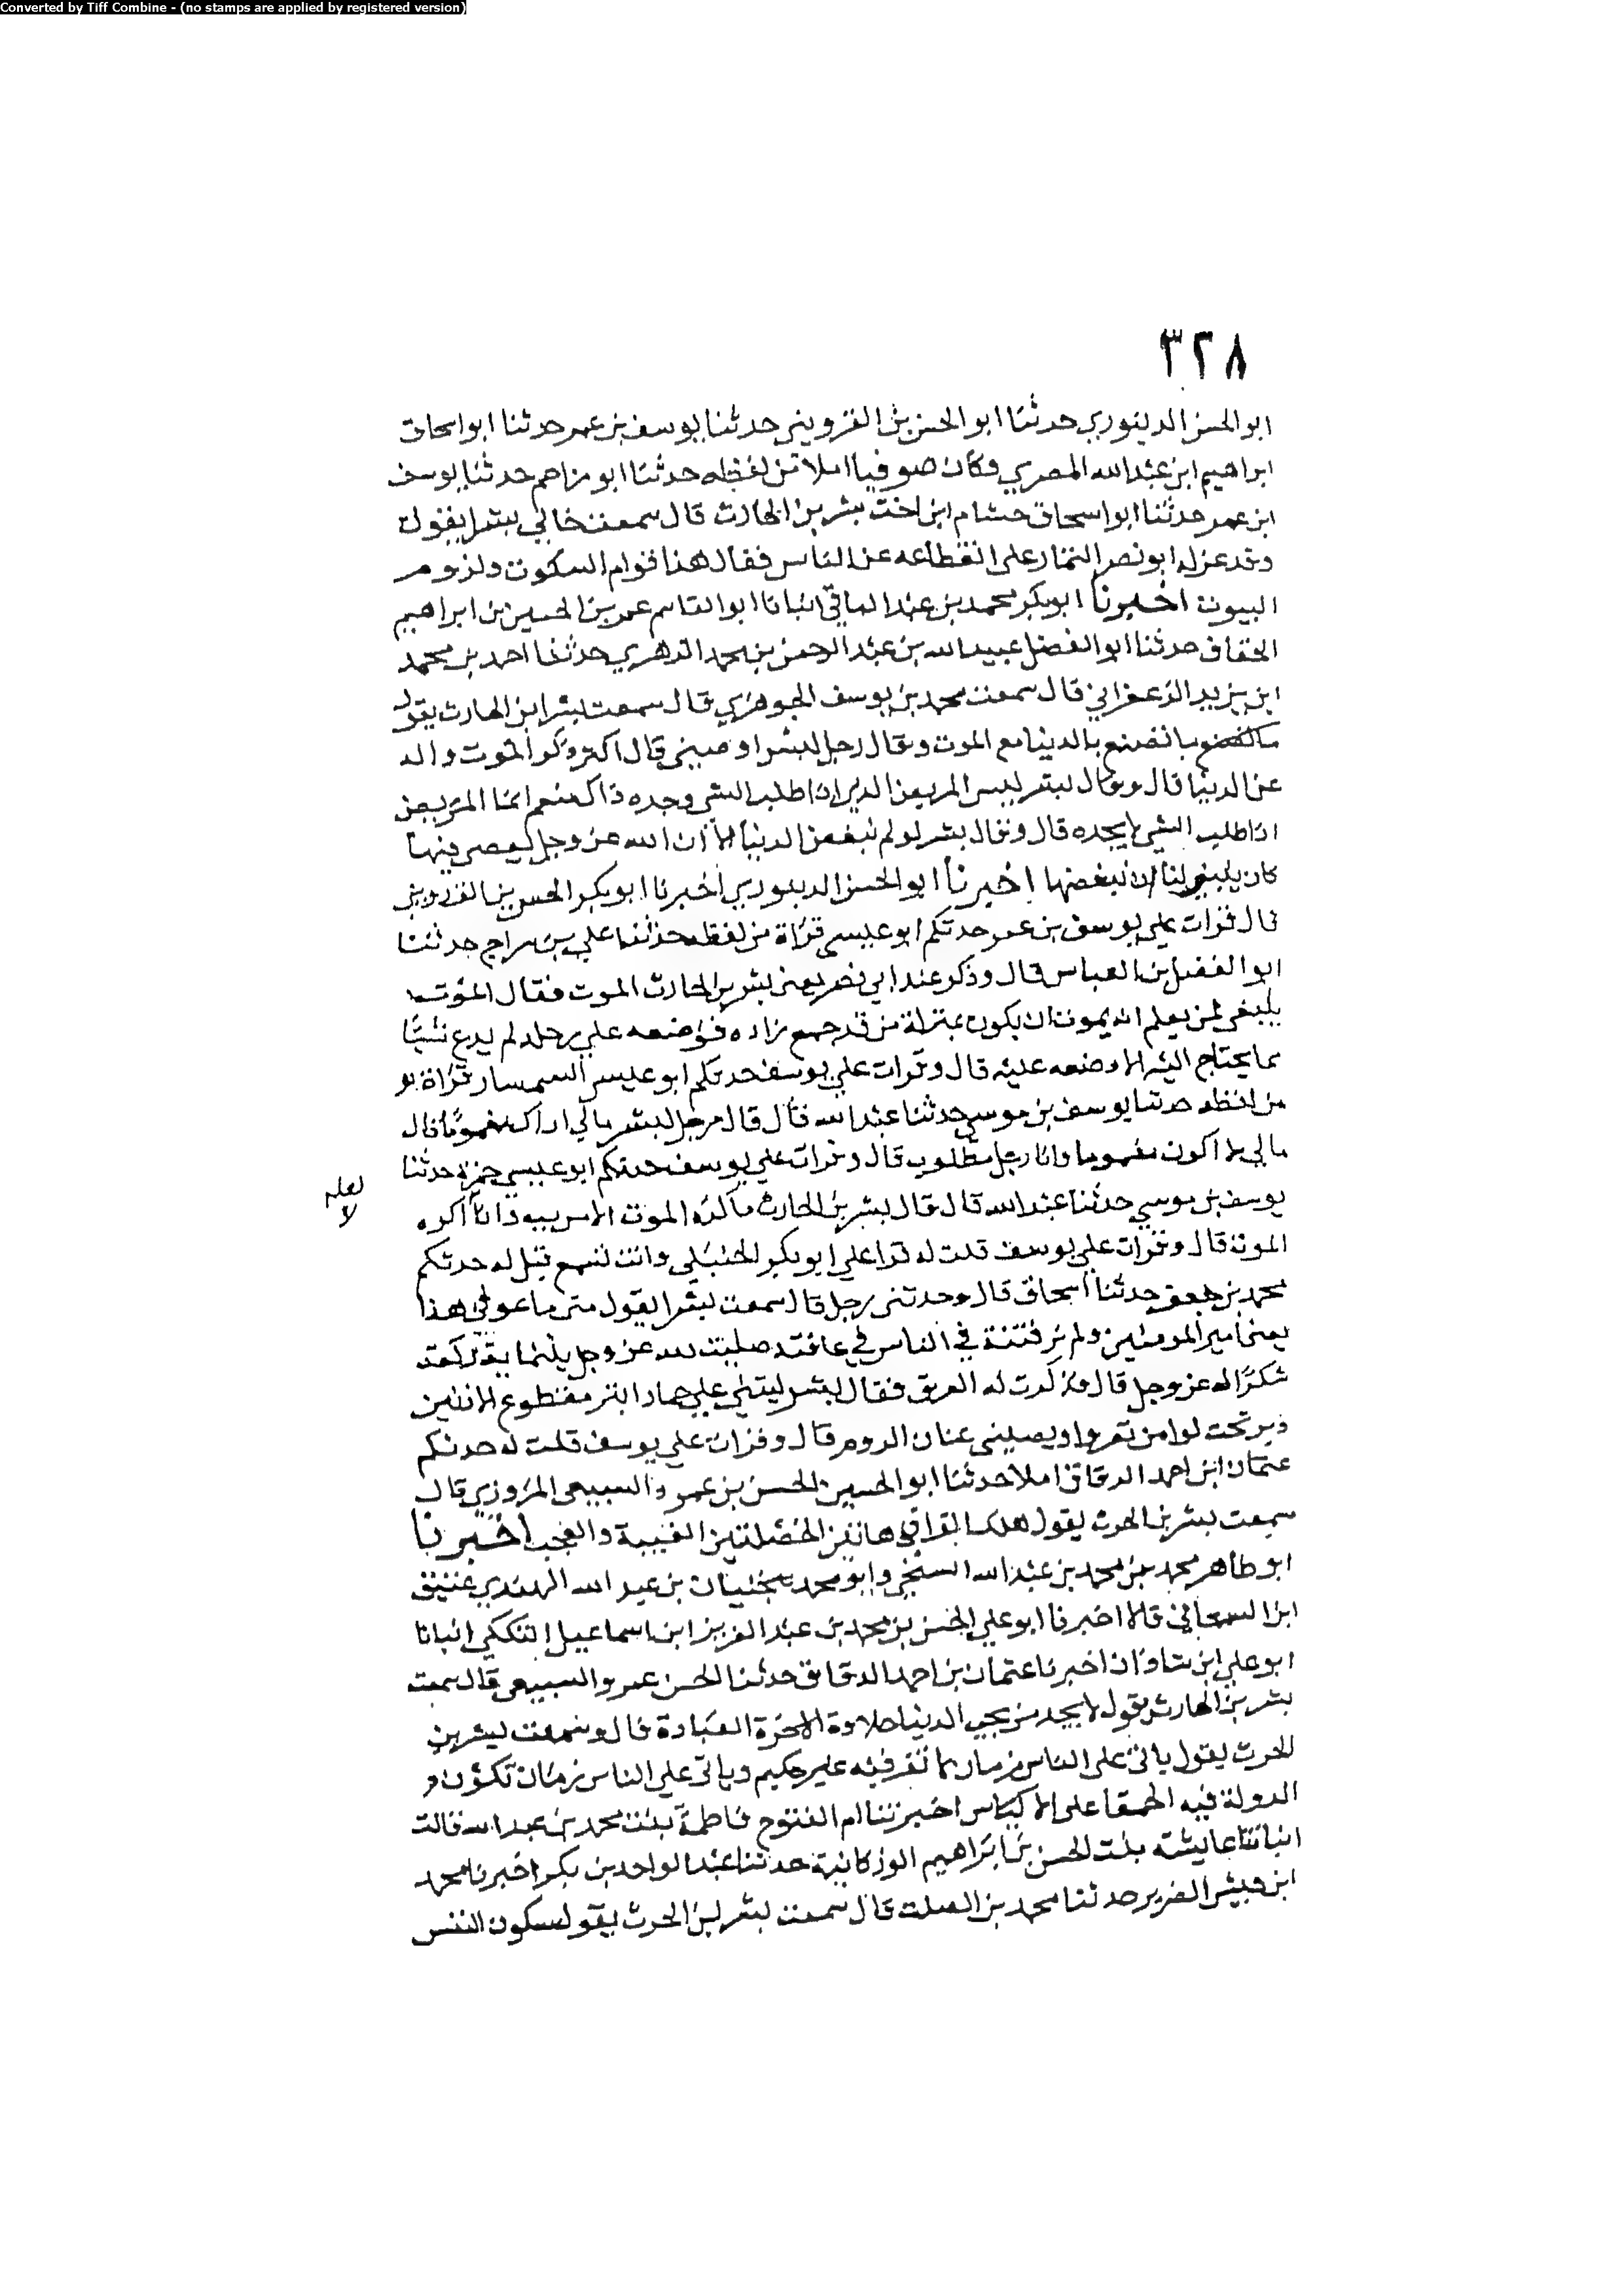 Converted by Tiff Combine - (no stamps are applied by registered version)
٣٢٨
ابو الحسن الدينوري حدثنا ابو الحسن بن القزويني حدثنا يوسف بن عمر حدثنا ابو اسحاق
ابراهيم ابن عبد الله المصري وكان صوفيا املا من لفظه حدثنا ابو مزاحم حدثنا يوسف
ابن عمر حدثنا ابو اسحاق حشام ابن اخت بشر بن الحارث قال سمعت خالي بشرا يقول
وقد عزله ابو نصر التمار على انقطاعه عن الناس فقال هذا قوام السكوت ولزوم
البيوت اخبرنا ابو بكر محمد بن عبد الباقي انبانا ابو القاسم عمر بن الحسين بن ابراهيم
الخفاف حدثنا ابو الفضل عبيد الله بن عبد الرحمن بن محمد الزهري حدثنا احمد بن محمد
ابن يزيد الزعفراني قال سمعت محمد بن يوسف الجوهري قال سمعت بشر ابن الحارث يقول
ما تصنع بالدنيا مع الموت وقال رجل لبشر اوصيني قال اكثر ذكر الموت واله
عن الدنيا قال وقال لبشر ليس المريض الذي اذا طلب الشي وجده ذاك منعم انما المريض
اذا طلب الشي لا يجده قال وقال بشر لو لم نبغض الدنيا الا ان الله عز وجل يعصى فيها
كان ينبغي لنا ان نبغضها اخبرنا ابو الحسن الدينوري اخبرنا ابو بكر الحسن بن القزويني
قال قرات على يوسف بن عمر حدثكم ابو عيسى قراة من لفظه حدثنا علي بن سراج حدثنا
ابو الفضل بن العباس قال وذكر عند ابي نصر يعني بشر بن الحارث الموت فقال الموت
ينبغي لمن يعلم انه يموت ان يكون بمنزلة من قد جمع زاده فوضعه على رحله لم يدع شيًا
مما يحتاج اليه الا وضعه عليه قال وقرات على يوسف حدثكم ابو عيسى السمسار قراة
من لفظه حدثنا يوسف بن موسى حدثنا عبد الله قال قال رجل لبشر مالي اراك مغموما قال
مالي لا اكون مغموما وانا رجل مطلوب قال وقرات على يوسف حدثكم ابو عيسى حمزة حدثنا
يوسف بن موسى حدثنا عبد الله قال قال بشر بن الحارث ما كره الموت الا مريب وانا اكره
لعله
لا
الموت قال وقرات على يوسف قلت له قرا علي ابو بكر الحنبلي وانت تسمع قيل له حدثكم
محمد بن جعفر حدثنا اسحاق قال وحدثني رجل قال سمعت بشرا يقول متى ما عوفي هذا
يعني امير المومنين ولم فتنة في الناس في عافيته صليت لله عز وجل ركعة
شكرًا له عز وجل قال فذكرت له العرق فقال بشر ليتني على حمار ابتر مقطوع الاذنين
وقال وقرات على يوسف قلت له حدثكم
عثمان ابن احمد الدقاق املا حدثنا ابو الحسين الحسن بن عمرو السبيعي المروزي قال
سمعت بشر بن الحرث يقول هلك القرا في هاتين الخصلتين الغيبة والعجب اخبرنا
ابو طاهر محمد بن محمد بن عبد الله السنجي وابو محمد بختيار بن عبد الله الهندي عتيق
ابن السمعاني قالا اخبرنا ابو علي الحسن بن محمد بن عبد العزيز ابن اسماعيل التككي انبانا
ابو علي ابن شاذان اخبرنا عثمان بن احمد الدقاق حدثنا الحسن عمرو السبيعي قال سمعت
بشر بن الحارث يقول لا يجد من يحب الدنيا حلاوة الاخرة العبادة قال وسمعت بشر بن
الحرث يقول ياتي على الناس زمان لا تقر فيه عين حكيم وياتي على الناس زمان تكون
الدولة فيه الحمقا على الاكياس اخبرتنا ام الفتوح فاطمة بنت محمد بن عبد الله قالت
انباتنا عايشة بنت الحسن بن ابراهيم الوركانية حدثنا عبد الواحد بن بكر اخبرنا محمد
ابن حبيش الضرير حدثنا محمد بن الصلت قال سمعت بشر بن الحرث يقول سكون النفس